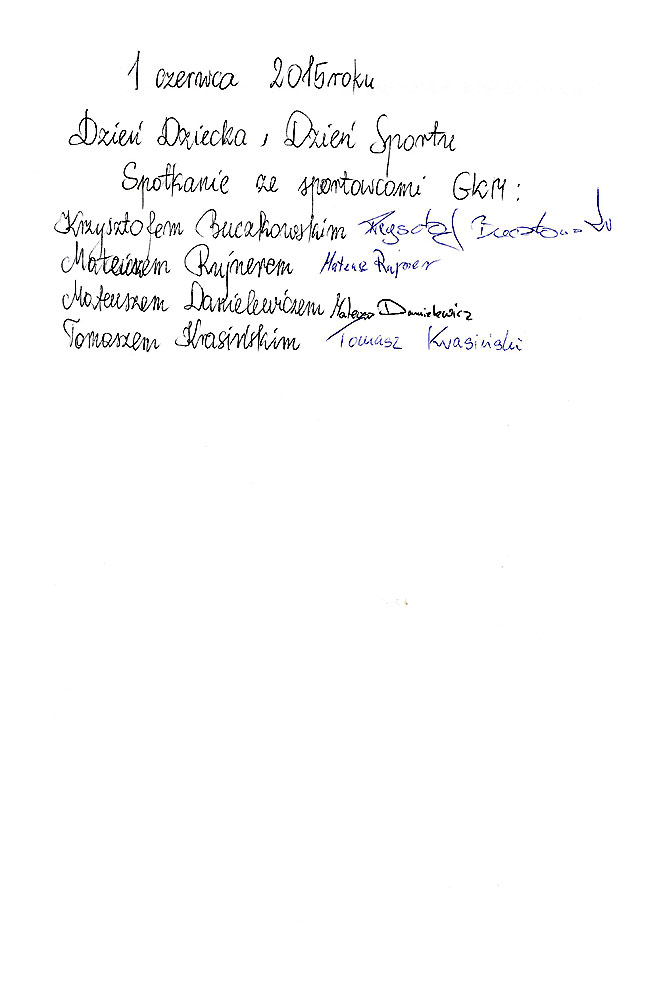 1 czerwca 2015 roku
Dzień Dziecka, Dzień Sportu
Spotkanie ze sportowcami GKM:
Krzysztofem Buczkowskim Krzysztof
Mateuszem Rujnerem Mateusz Rujner
Mateuszem Danielewiczem Mateusz Danielewicz
Tomaszem Krasińskim Tomasz Krasiński